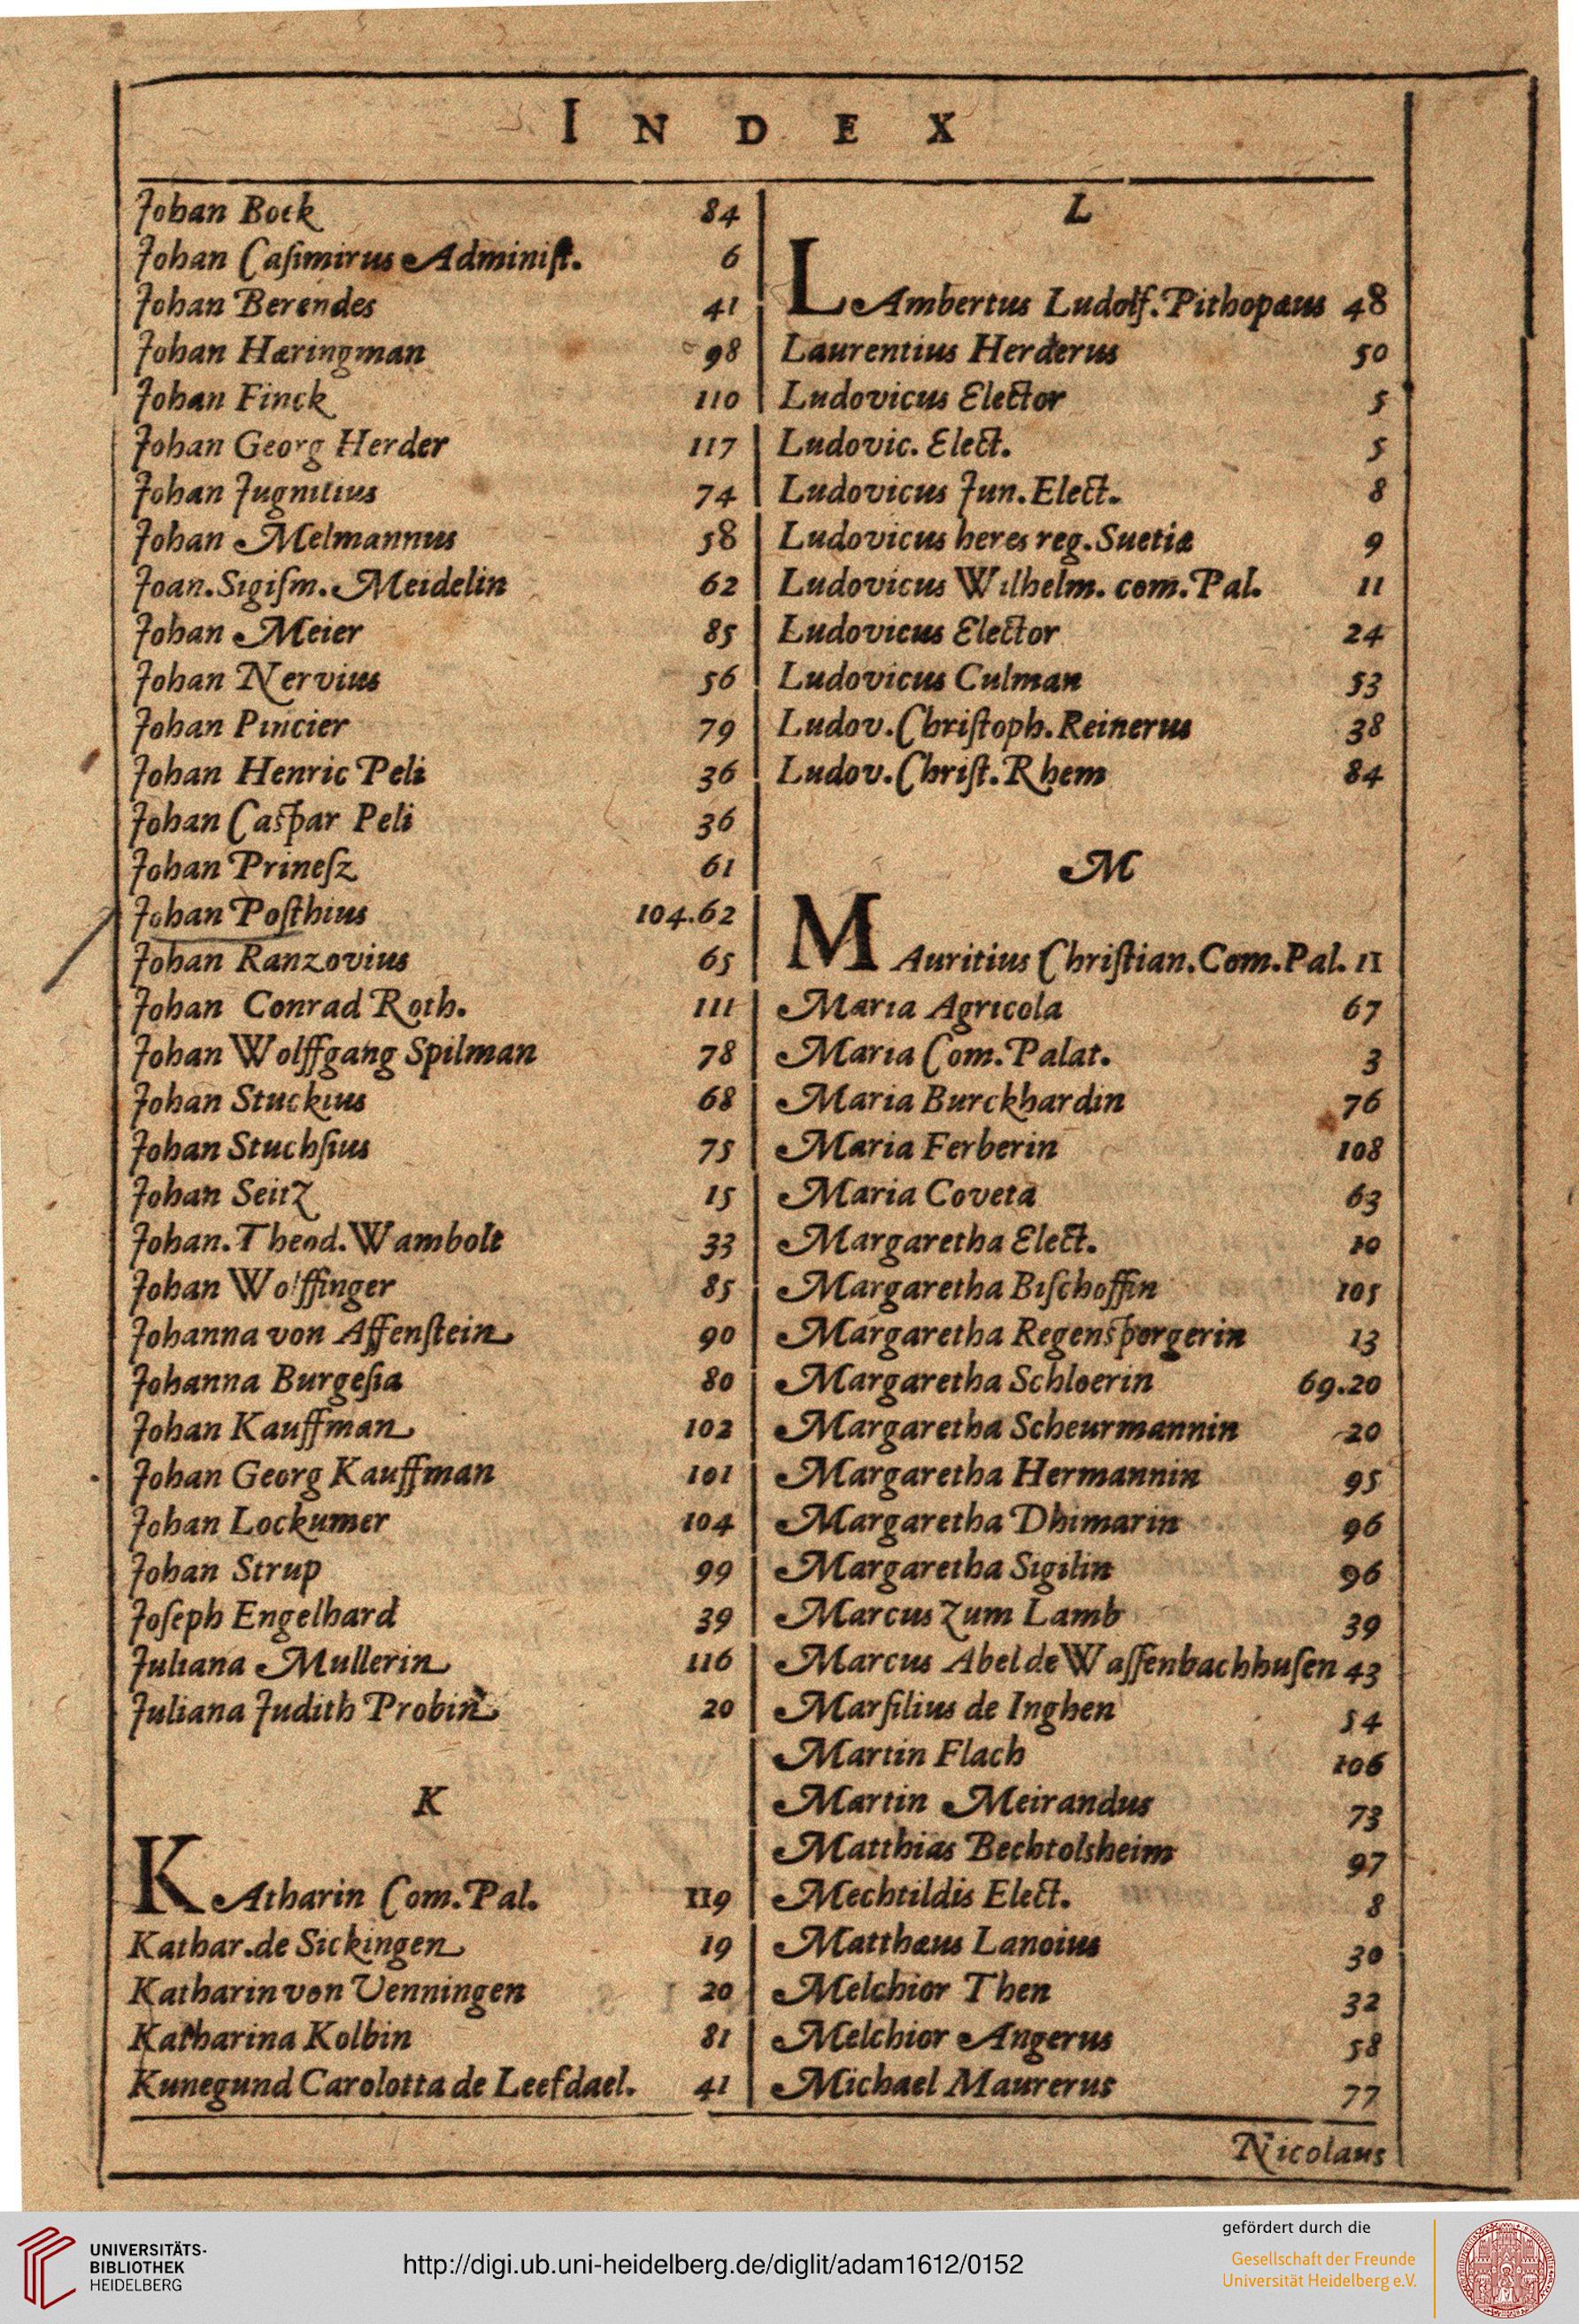 INDEX
Johan Bock 84
Johan Casimirus Administ. 6
Johan Berendes 41
Johan Hæringman 98
Johan Finck 110
Johan Georg Herder 117
Johan Jugnitius 74
Johan Melmannus 58
Joan. Sigiſm. Meidelin 62
Johan Meier 85
Johan Nervius 56
Johan Pincier 79
Johan Henric Peli 36
Johan Caſpar Peli 36
Johan Prineſz 61
Johan Poſthius 104.62
Johan Ranzovius 65
Johan Conrad Roth. 111
Johan Wolffgang Spilman 78
Johan Stuckius 68
Johan Stuchſius 75
Johan Seitz 15
Johan. Theod. Wambolt 33
Johan Wolffinger 85
Johanna von Affenſtein 90
Johanna Burgeſia 80
Johan Kauffman 102
Johan Georg Kauffman 101
Johan Lockumer 104
Johan Strup 99
Joſeph Engelhard 39
Juliana Mullerin 116
Juliana Judith Probin 20
K
KAtharin Com. Pal. 119
Kathar. de Sickingen 19
Katharin von Venningen 20
Katharina Kolbin 81
Kunegund Carolotta de Leefdael. 41
L
LAmbertus Ludolf. Pithopæus 48
Laurentius Herderus 50
Ludovicus Elector 5
Ludovic. Elect. 5
Ludovicus Jun. Elect. 8
Ludovicus heres reg. Suetiæ 9
Ludovicus Wilhelm. com. Pal. 11
Ludovicus Elector 24
Ludovicus Culman 53
Ludov. Chriſtoph. Reinerus 38
Ludov. Chriſt. Rhem 84
M
MAuritius Chriſtian. Com. Pal. 11
Maria Agricola 67
Maria Com. Palat. 3
Maria Burckhardin 76
Maria Ferberin 108
Maria Coveta 63
Margaretha Elect. 10
Margaretha Biſchoffin 105
Margaretha Regenſpergerin 13
Margaretha Schloerin 69.20
Margaretha Scheurmannin 20
Margaretha Hermannin 95
Margaretha Dhimarin 96
Margaretha Sigilin 96
Marcus Zum Lamb 39
Marcus Abel de Waſſenbachhuſen 43
Marſilius de Inghen 54
Martin Flach 106
Martin Meirandus 73
Matthias Bechtolsheim 97
Mechtildis Elect. 8
Matthæus Lanoius 30
Melchior Then 32
Melchior Angerus 58
Michael Maurerus 77
Nicolaus
UNIVERSITÄTS-
BIBLIOTHEK
HEIDELBERG
http://digi.ub.uni-heidelberg.de/diglit/adam1612/0152
gefördert durch die
Gesellschaft der Freunde
Universität Heidelberg e.V.